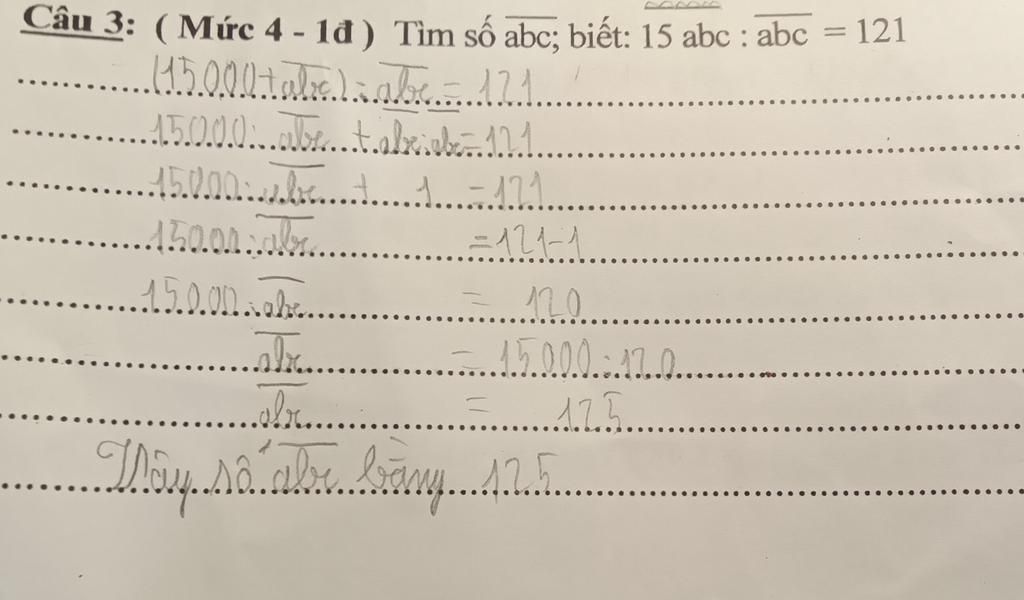 Câu 3: ( Mức 4 - 1đ ) Tìm số abc; biết: 15 abc : abc = 121
(15000+abc) : abc = 121
15000 : abc + abc : abc = 121
15000 : abc + 1 = 121
15000 : abc = 121-1
15000 : abc = 120
abc = 15000 : 120
abc = 125
Vậy số abc bằng 125